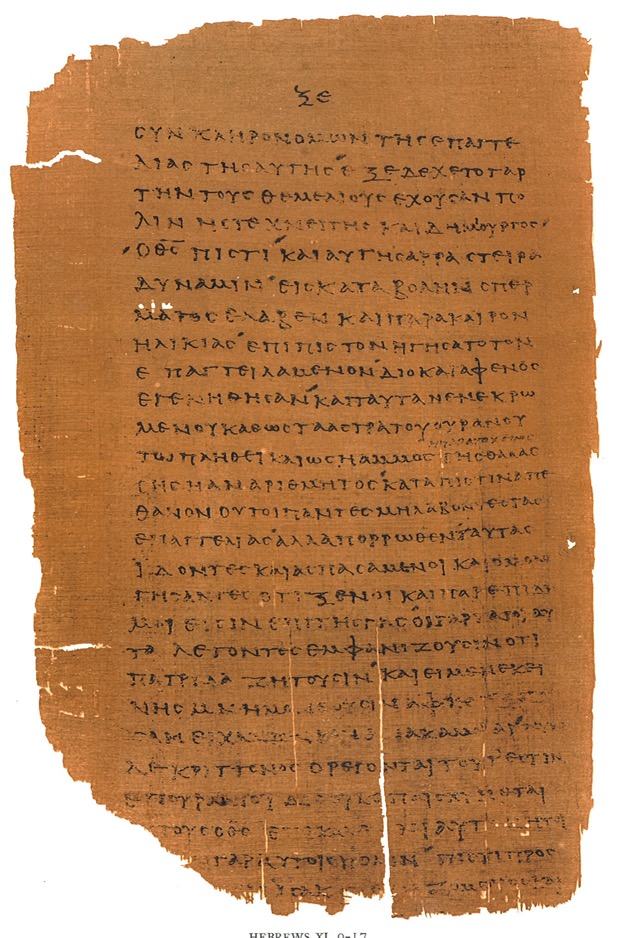 ξε
ϹΥΝΚΛΗΡΟΝΟΜΩΝ ΤΗϹ ΕΠΑΓΓΕ
ΛΙΑϹ ΤΗϹ ΑΥΤΗϹ ΕΞΕΔΕΧΕΤΟ ΓΑΡ
ΤΗΝ ΤΟΥϹ ΘΕΜΕΛΙΟΥϹ ΕΧΟΥϹΑΝ ΠΟ
ΛΙΝ ΗϹ ΤΕΧΝΕΙΤΗϹ ΚΑΙ ΔΗΜΙΟΥΡΓΟϹ
Ο Θ̅Ϲ̅ ΠΙϹΤΙ ΚΑΙ ΑΥΤΗ ϹΑΡΡΑ ϹΤΕΙΡΑ
ΔΥΝΑΜΙΝ ΕΙϹ ΚΑΤΑΒΟΛΗΝ ϹΠΕΡ
ΜΑΤΟϹ ΕΛΑΒΕΝ ΚΑΙ ΠΑΡΑ ΚΑΙΡΟΝ
ΗΛΙΚΙΑϹ ΕΠΙ ΠΙϹΤΟΝ ΗΓΗϹΑΤΟ ΤΟΝ
ΕΠΑΓΓΕΙΛΑΜΕΝΟΝ ΔΙΟ ΚΑΙ ΑΦ ΕΝΟϹ
ΕΓΕΝΗΘΗϹΑΝ ΚΑΙ ΤΑΥΤΑ ΝΕΝΕΚΡΩ
ΜΕΝΟΥ ΚΑΘΩϹ ΤΑ ΑϹΤΡΑ ΤΟΥ ΟΥΡΑΝΟΥ
ΤΩ ΠΛΗΘΕΙ ΚΑΙ ΩϹ Η ΑΜΜΟϹ ΤΗϹ ΘΑΛΑϹ
ϹΗϹ Η ΑΝΑΡΙΘΜΗΤΟϹ ΚΑΤΑ ΠΙϹΤΙΝ ΑΠΕ
ΘΑΝΟΝ ΟΥΤΟΙ ΠΑΝΤΕϹ ΜΗ ΛΑΒΟΝΤΕϹ ΤΑϹ
ΕΠΑΓΓΕΛΙΑϹ ΑΛΛΑ ΠΟΡΡΩΘΕΝ ΑΥΤΑϹ
ΙΔΟΝΤΕϹ ΚΑΙ ΑϹΠΑϹΑΜΕΝΟΙ ΚΑΙ ΟΜΟΛΟ
ΓΗϹΑΝΤΕϹ ΟΤΙ ΞΕΝΟΙ ΚΑΙ ΠΑΡΕΠΙΔΗ
ΜΟΙ ΕΙϹΙΝ ΕΠΙ ΤΗϹ ΓΗϹ ΟΙ ΓΑΡ ΤΟΙΑΥ
ΤΑ ΛΕΓΟΝΤΕϹ ΕΜΦΑΝΙΖΟΥϹΙΝ ΟΤΙ
ΠΑΤΡΙΔΑ ΖΗΤΟΥϹΙΝ ΚΑΙ ΕΙ ΜΕΝ ΕΚΕΙ
ΝΗϹ ΜΝΗΜΟΝΕΥΟΥϹΙΝ ΑΦ
ΕΙΧΑΝ
ΚΡΙΤΤΟΝΟϹ ΟΡΕΓΟΝΤΑΙ ΤΟΥΤ ΕϹΤΙΝ
ΕΠΟΥΡΑΝΙΟΥ ΔΙΟ ΟΥΚ ΕΠΑΙϹΧΥΝΕΤΑΙ
ΑΥΤΟΥϹ Ο Θ̅Ϲ̅
ΓΑΡ ΑΥΤΟΙϹ ΠΟΛΙΝ ΠΙϹΤΙ ΠΡΟϹ
HEBREWS XI. 9-17